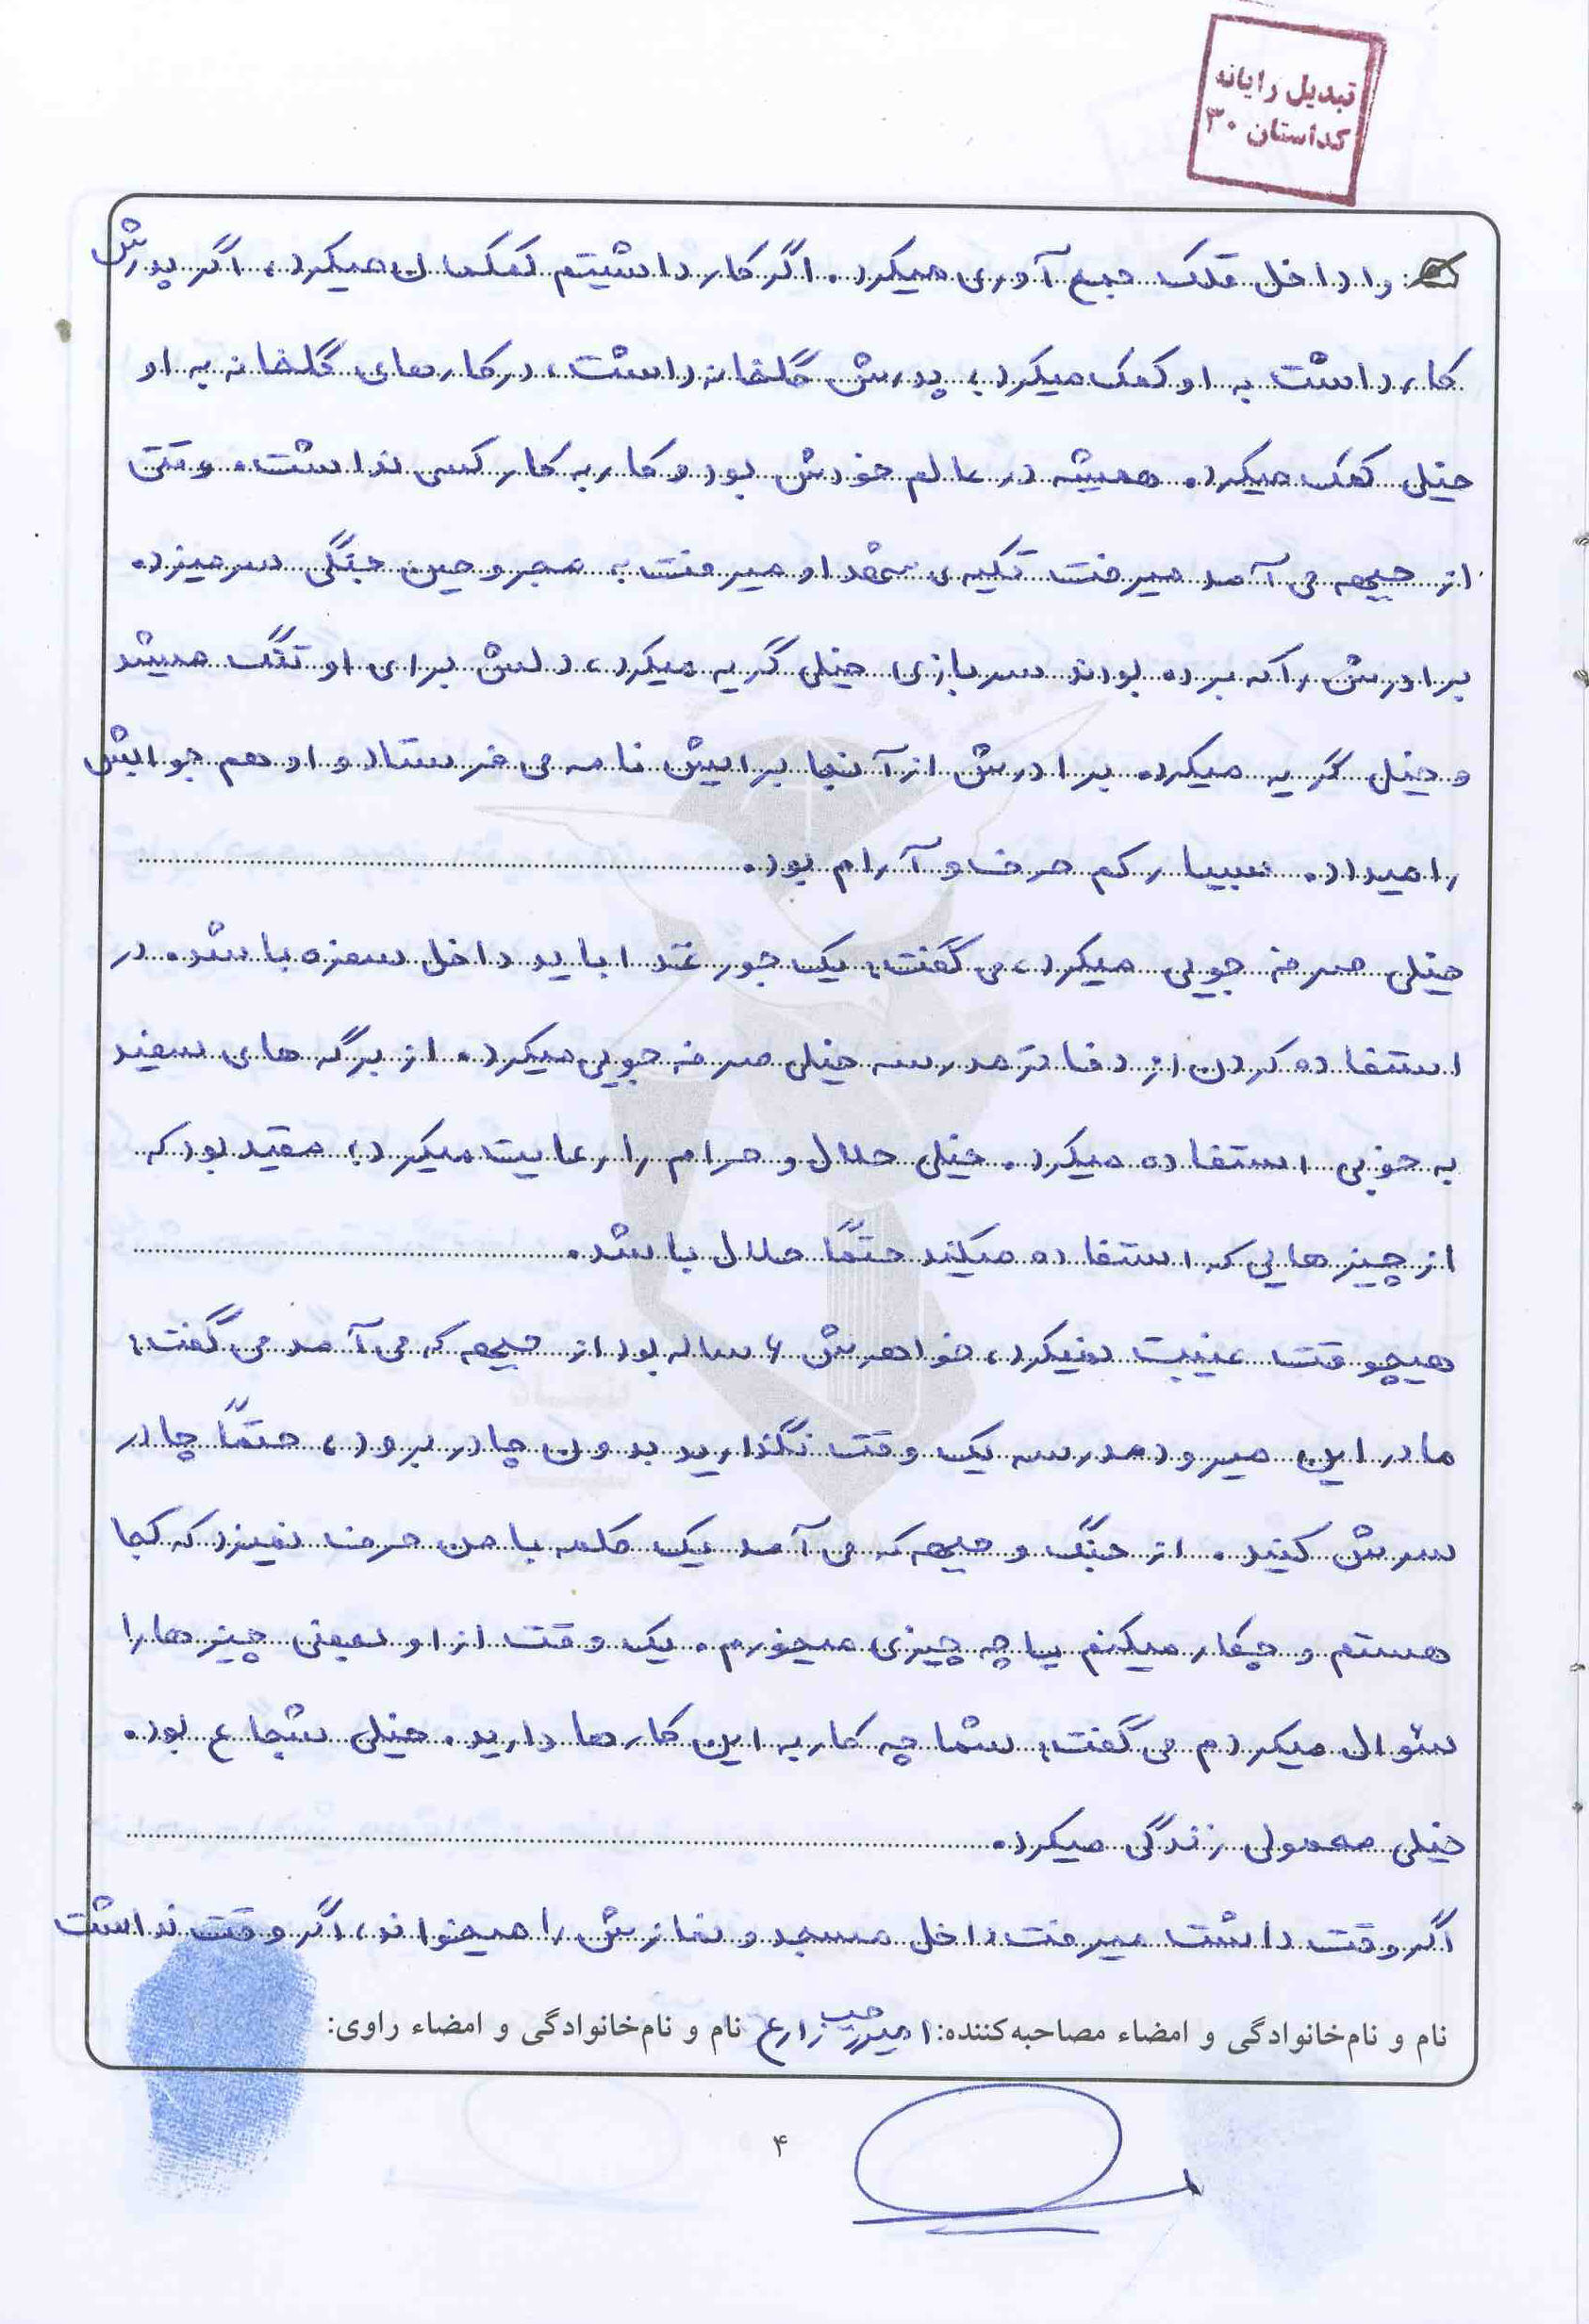 تبدیل رایانه
کداستان ۳۰
را داخل قلک جمع آوری میکرد. اگر کار داشتیم کمکمان میکرد، اگر پدرش
کار داشت به او کمک میکرد، پدرش گلخانه داشت، در کارهای گلخانه به او
خیلی کمک میکرد. همیشه در عالم خودش بود و کار به کار کسی نداشت. وقتی
از جبهه می آمد میرفت تکیه ی شهدا و میرفت به مجروحین جنگی سر میزد.
برادرش را که برده بودند سربازی خیلی گریه میکرد، دلش برای او تنگ میشد
و خیلی گریه میکرد. برادرش از آنجا برایش نامه می فرستاد و او هم جوابش
را میداد. بسیار کم حرف و آرام بود.
خیلی صرفه جویی میکرد، می گفت: یک جور غذا باید داخل سفره باشد. در
استفاده کردن از دفاتر مدرسه خیلی صرفه جویی میکرد. از برگه های سفید
به خوبی استفاده میکرد. خیلی حلال و حرام را رعایت میکرد، مقید بود که
از چیزهایی که استفاده میکند حتماً حلال باشد.
هیچوقت غیبت نمیکرد، خواهرش ۶ ساله بود از جبهه که می آمد می گفت:
مادر این میرود مدرسه یک وقت نگذارید بدون چادر برود، حتماً چادر
سرش کنید. از جنگ و جبهه که می آمد یک کلمه با من حرف نمیزد که کجا
هستم و چکار میکنم یا چه چیزی میخورم. یک وقت از او بعضی چیزها را
سئوال میکردم می گفت: شما چه کار به این کارها دارید. خیلی شجاع بود.
خیلی معمولی زندگی میکرد.
اگر وقت داشت میرفت داخل مسجد و نمازش را میخواند، اگر وقت نداشت
نام و نام‌خانوادگی و امضاء مصاحبه‌کننده: امیررجب زارع نام و نام‌خانوادگی و امضاء راوی:
۴